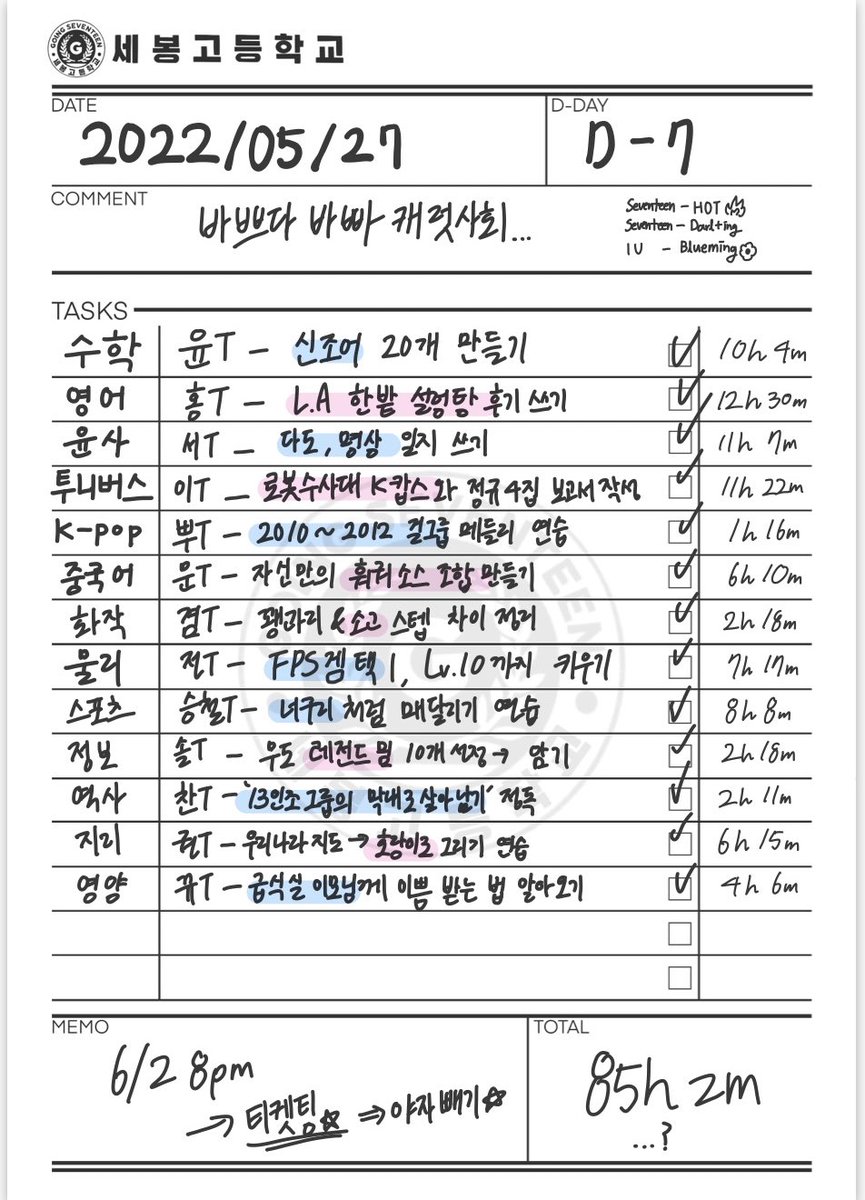 GOING SEVENTEEN
세봉고등학교
세봉고등학교
DATE
2022/05/27
D-DAY
D-7
COMMENT
바쁘다 바빠 캐럿사회...
Seventeen - HOT
Seventeen - Darl+ing
IU - Blueming
TASKS
수학 윤T - 신조어 20개 만들기 10h 4m
영어 홍T - L.A 한밭 설렁탕 후기 쓰기 12h 30m
윤사 서T - 다도, 명상 일지 쓰기 11h 7m
투니버스 이T - 로봇수사대 K캅스와 정규4집 보고서 작성 11h 22m
K-pop 뿌T - 2010~2012 걸그룹 메들리 연습 1h 16m
중국어 문T - 자신만의 훠궈소스 조합 만들기 6h 10m
화작 겸T - 꽹과리 & 소고 스텝 차이 정리 2h 18m
물리 전T - FPS겜 택1, Lv.10까지 키우기 7h 17m
스포츠 승철T - 너구리처럼 매달리기 연습 8h 8m
정보 솔T - 우도 레전드 밈 10개 선정 → 암기 2h 18m
역사 찬T - '13인조그룹의 막내로살아남기' 정독 2h 11m
지리 권T - 우리나라 지도 → 호랑이로 그리기 연습 6h 15m
영양 뀨T - 급식실 이모님께 이쁨 받는 법 알아오기 4h 6m
MEMO
6/2 8pm
→ 티켓팅 ⇒ 야자 빼기
TOTAL
85h 2m
...?